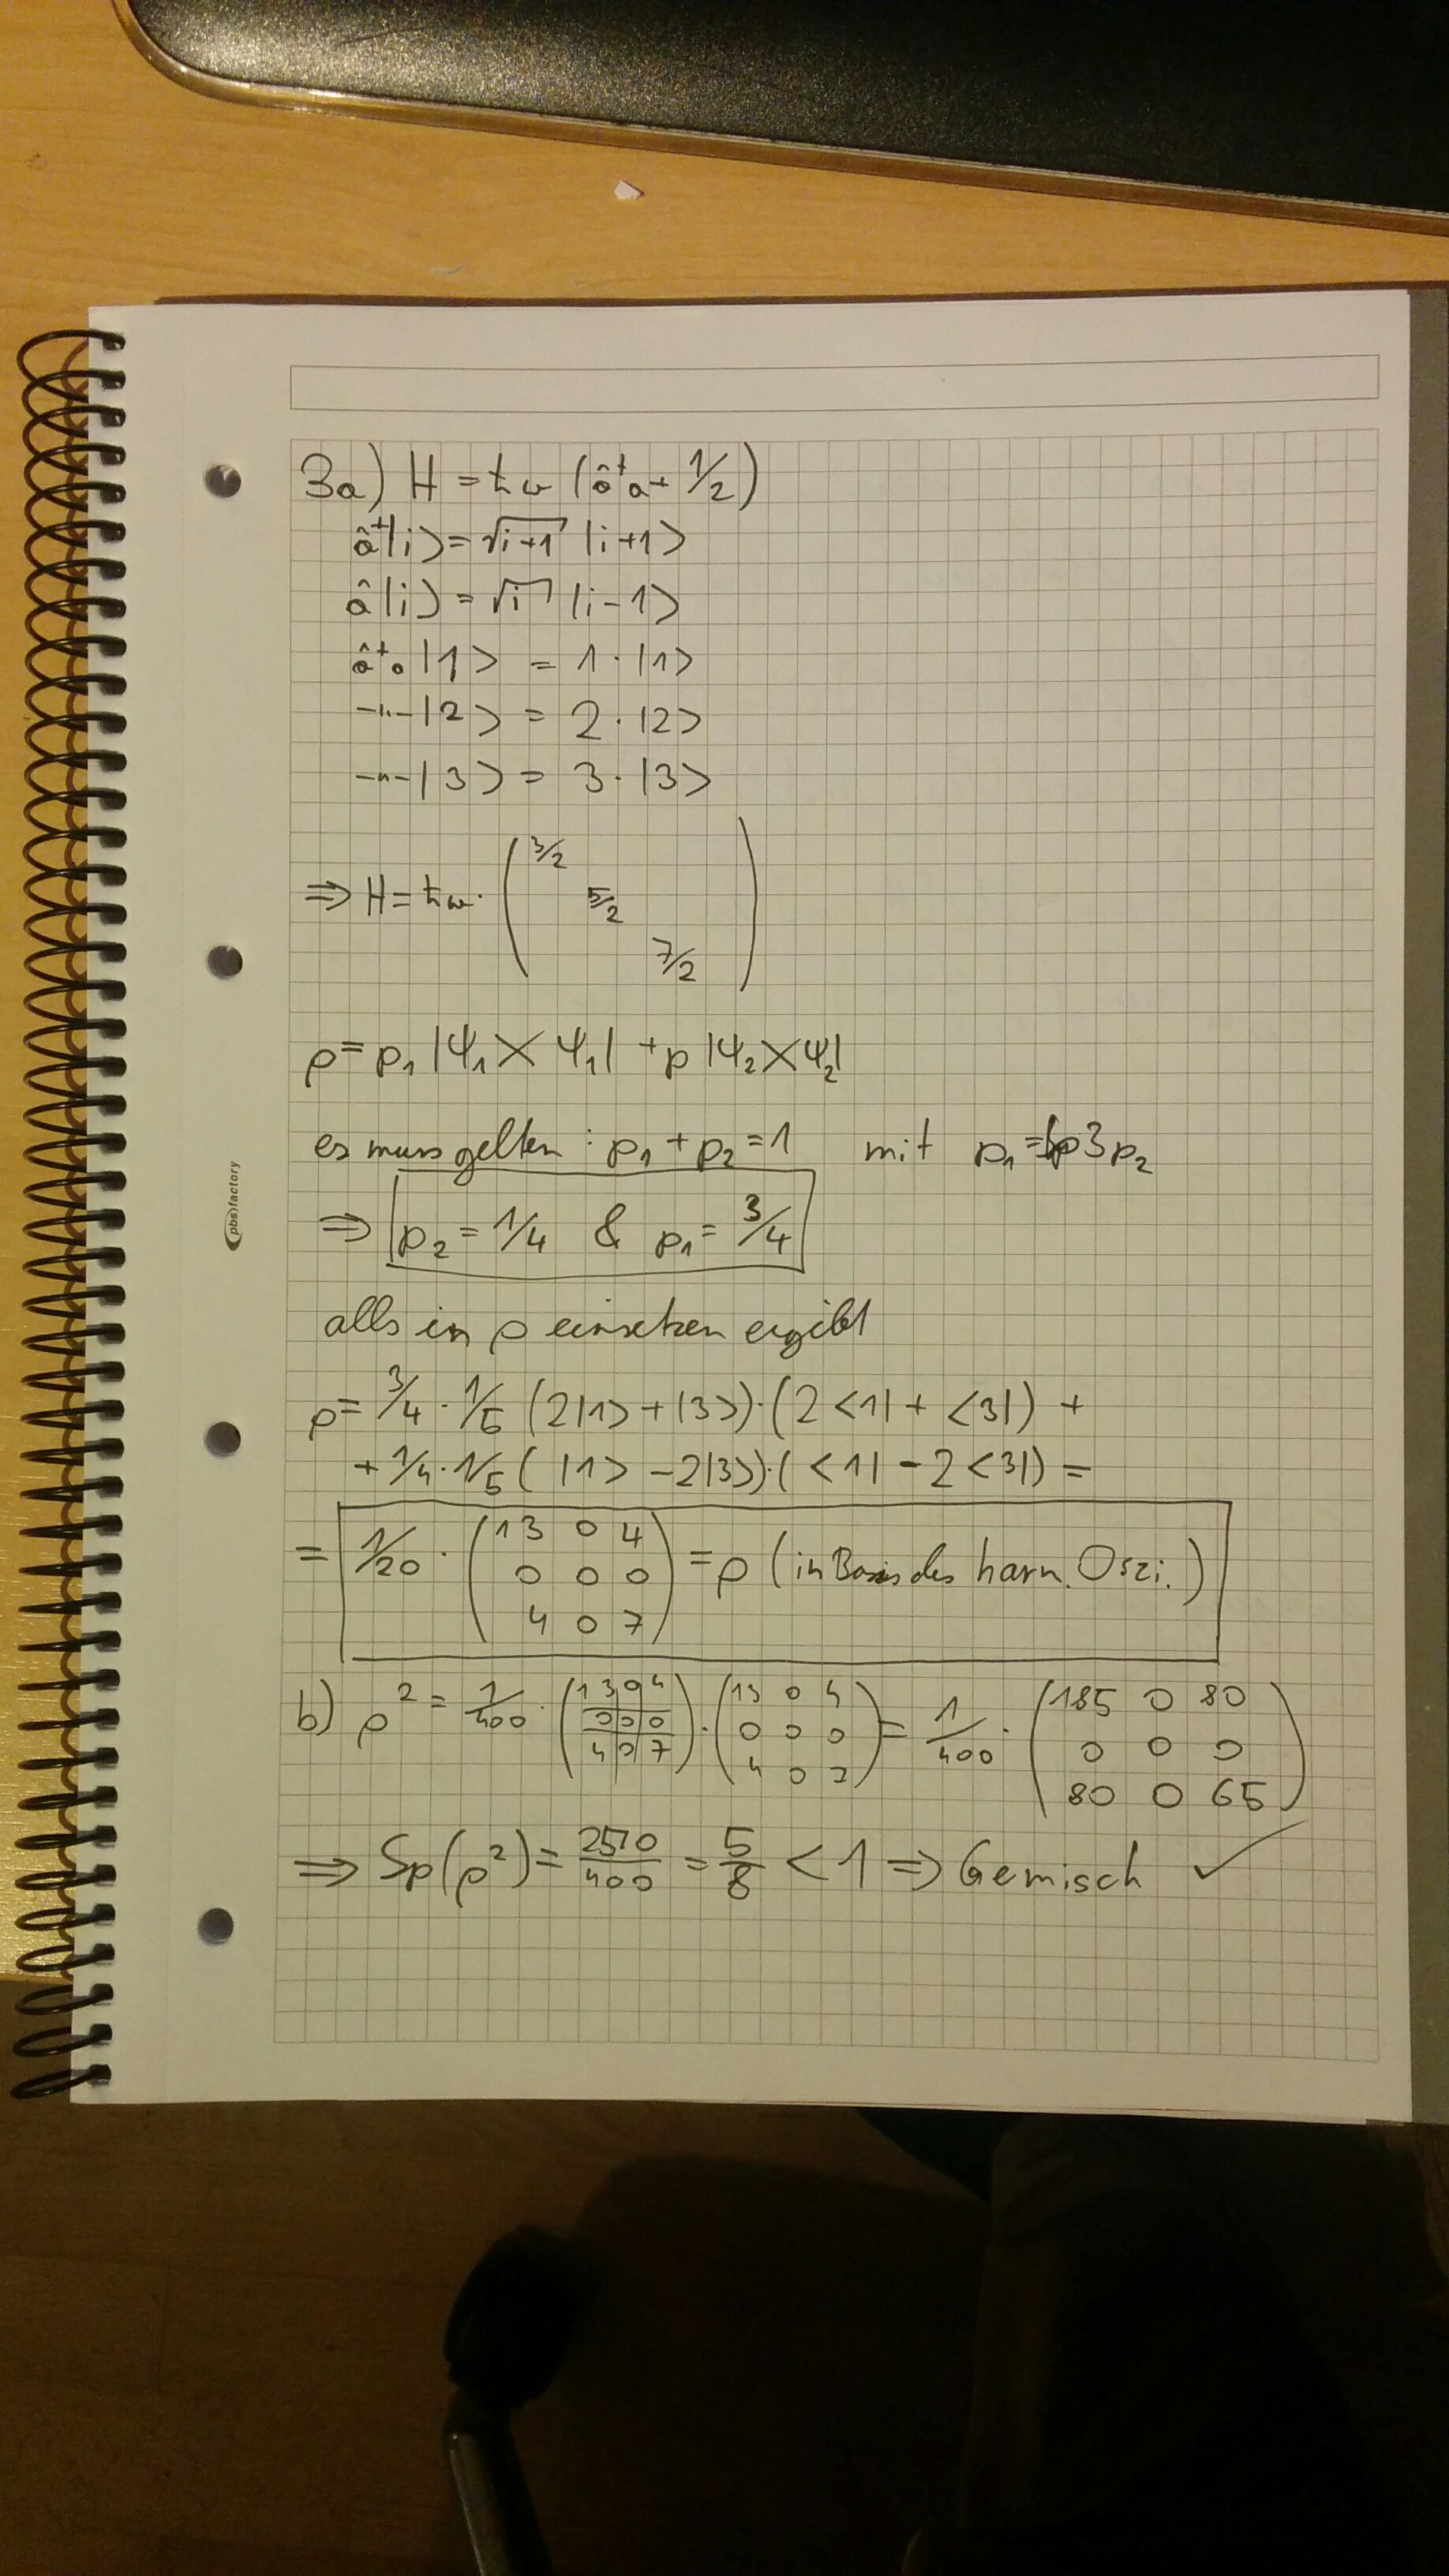 3a) H = ħω (â⁺a + 1/2)
â⁺|i⟩ = √(i+1) |i+1⟩
â|i⟩ = √i |i-1⟩
â⁺a |1⟩ = 1 · |1⟩
-"- |2⟩ = 2 · |2⟩
-"- |3⟩ = 3 · |3⟩
⇒ H = ħω · ( 3/2
5/2
7/2 )
ρ = p₁ |ψ₁⟩⟨ψ₁| + p |ψ₂⟩⟨ψ₂|
es muss gelten : p₁ + p₂ = 1 mit p₁ = 3p₂
⇒ p₂ = 1/4 & p₁ = 3/4
alls in ρ einsetzen ergibt
ρ = 3/4 · 1/5 (2|1⟩ + |3⟩) · (2⟨1| + ⟨3|) +
+ 1/4 · 1/5 ( |1⟩ - 2|3⟩) · ( ⟨1| - 2⟨3|) =
= 1/20 · ( 13 0 4
0 0 0
4 0 7 ) = ρ (in Basis des harm. Oszi.)
b) ρ² = 1/400 · ( 13 0 4 ) · ( 13 0 4 ) = 1/400 · ( 185 0 80
0 0 0 0 0 0 0 0 0
4 0 7 4 0 7 80 0 65 )
⇒ Sp(ρ²) = 250/400 = 5/8 < 1 ⇒ Gemisch ✓
(pbs)factory